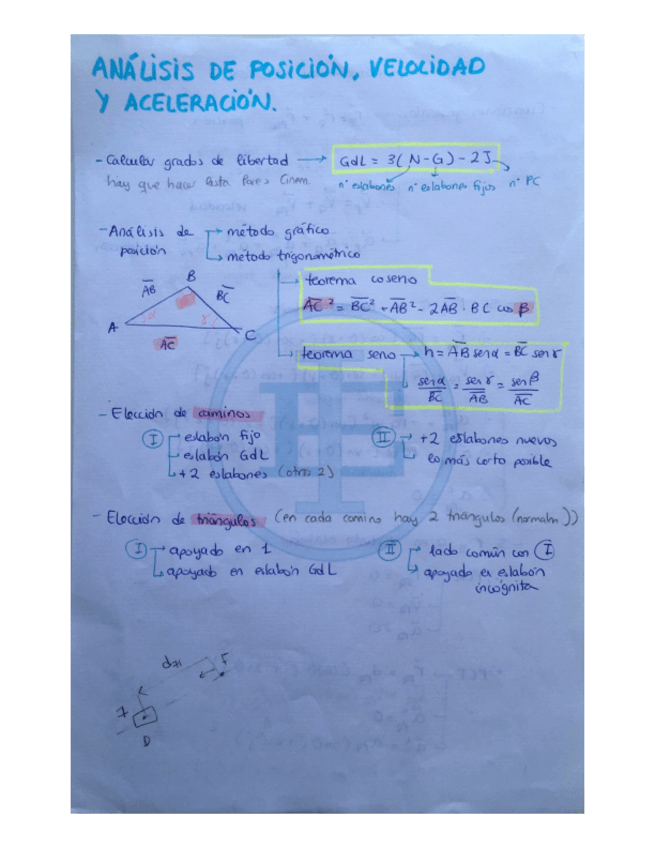 ANÁLISIS DE POSICIÓN, VELOCIDAD
Y ACELERACIÓN.
- Calcular grados de libertad → GdL = 3(N-G) - 2J
hay que hacer lista Pares Cinem. nº eslabones nº eslabones fijos nº PC
- Análisis de → método gráfico
posición → método trigonométrico
→ teorema coseno
AC² = BC² + AB² - 2AB · BC cos β
→ teorema seno → h = AB sen α = BC sen γ
sen α / BC = sen γ / AB = sen β / AC
B
AB
BC
A
α
γ
C
AC
- Elección de caminos
I → eslabón fijo
→ eslabón GdL
→ +2 eslabones (otros 2)
II → +2 eslabones nuevos
→ lo más corto posible
- Elección de triángulos (en cada camino hay 2 triángulos (normalm.))
I → apoyado en 1
→ apoyado en eslabón GdL
II → lado común con I
→ apoyado en eslabón
incógnita
F
C
7
D